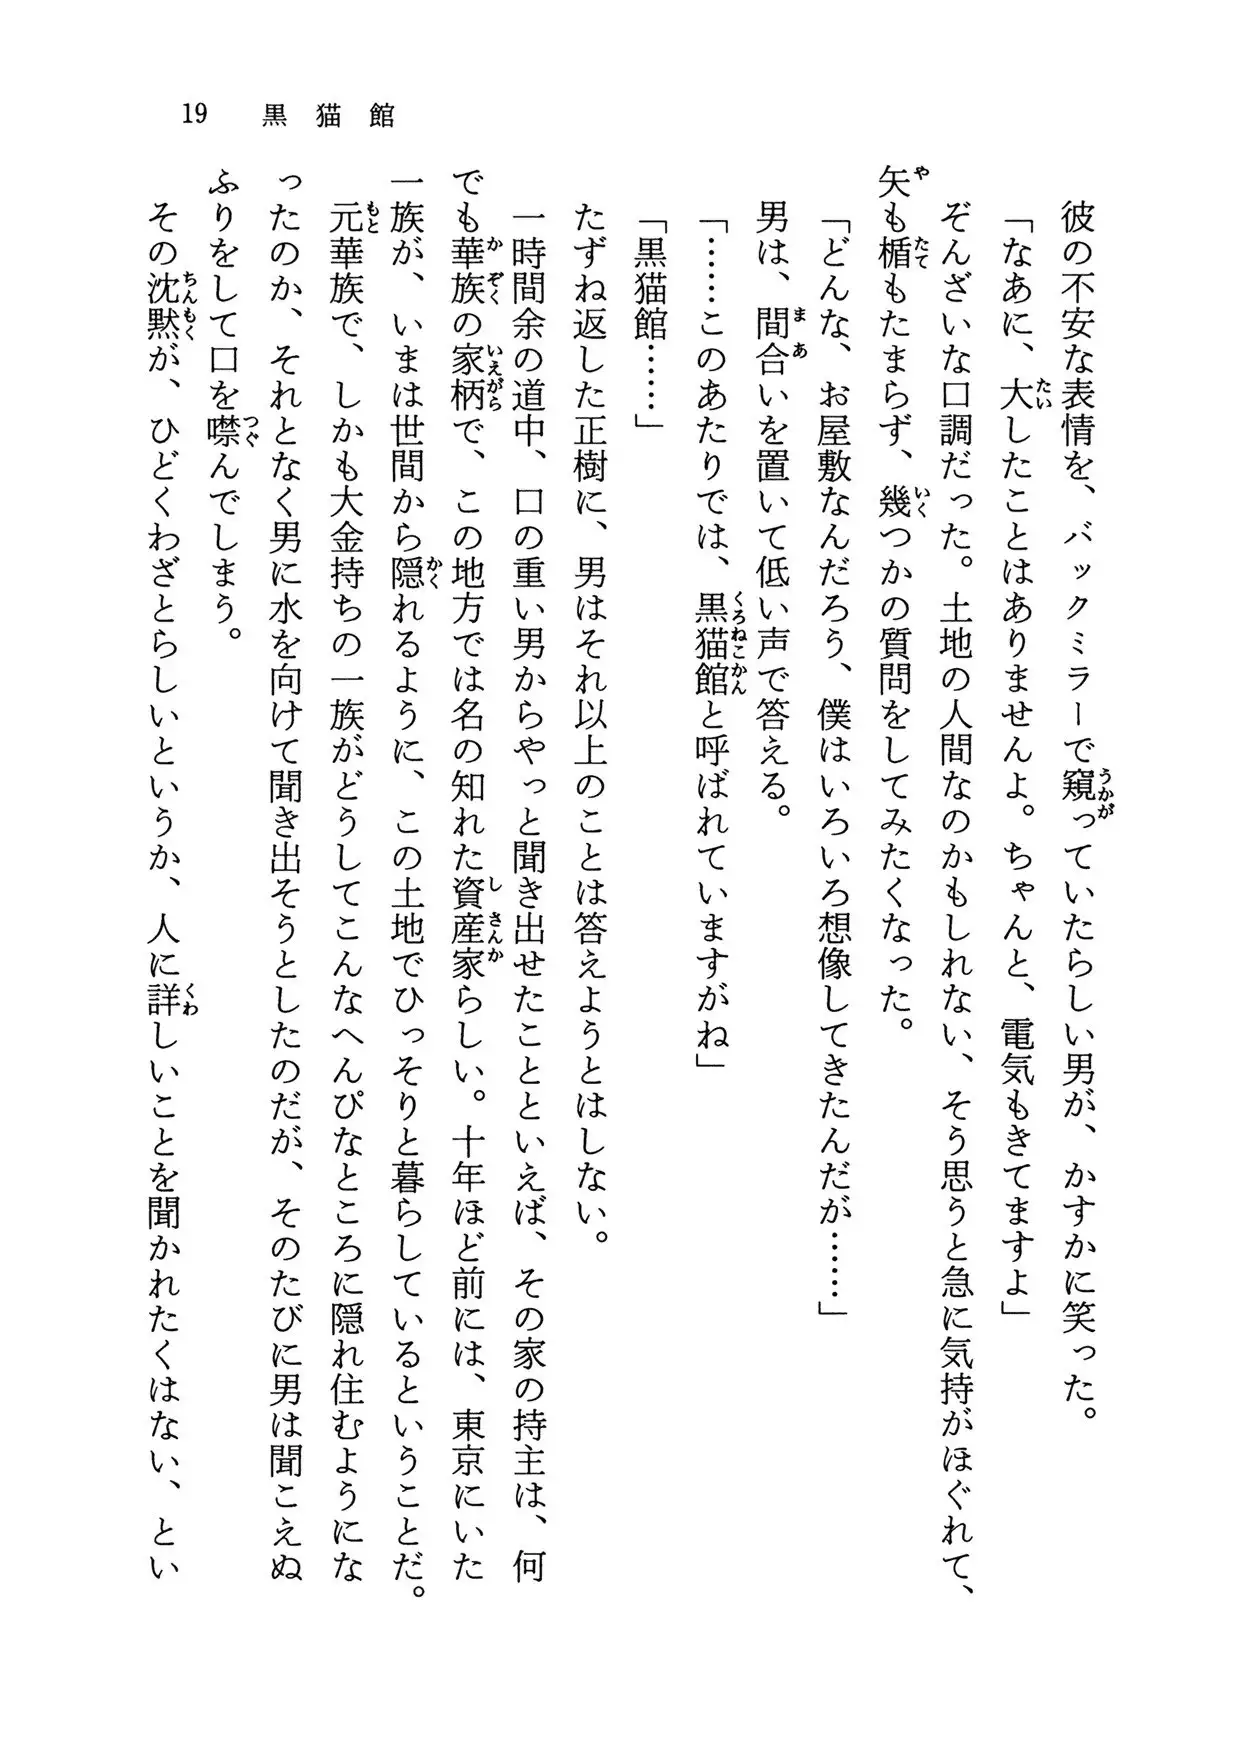 19 黒猫館
彼の不安な表情を、バックミラーで窺っていたらしい男が、かすかに笑った。
「なあに、大したことはありませんよ。ちゃんと、電気もきてますよ」
ぞんざいな口調だった。土地の人間なのかもしれない、そう思うと急に気持がほぐれて、
矢も楯もたまらず、幾つかの質問をしてみたくなった。
「どんな、お屋敷なんだろう、僕はいろいろ想像してきたんだが……」
男は、間合いを置いて低い声で答える。
「……このあたりでは、黒猫館と呼ばれていますがね」
「黒猫館……」
たずね返した正樹に、男はそれ以上のことは答えようとはしない。
一時間余の道中、口の重い男からやっと聞き出せたことといえば、その家の持主は、何
でも華族の家柄で、この地方では名の知れた資産家らしい。十年ほど前には、東京にいた
一族が、いまは世間から隠れるように、この土地でひっそりと暮らしているということだ。
元華族で、しかも大金持ちの一族がどうしてこんなへんぴなところに隠れ住むようにな
ったのか、それとなく男に水を向けて聞き出そうとしたのだが、そのたびに男は聞こえぬ
ふりをして口を噤んでしまう。
その沈黙が、ひどくわざとらしいというか、人に詳しいことを聞かれたくはない、とい